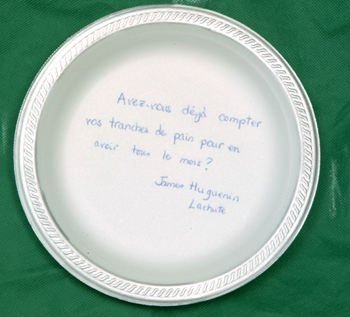 Avez-vous déjà compter
vos tranches de pain pour en
avoir tous le mois ?
James Huguenin
Lachute